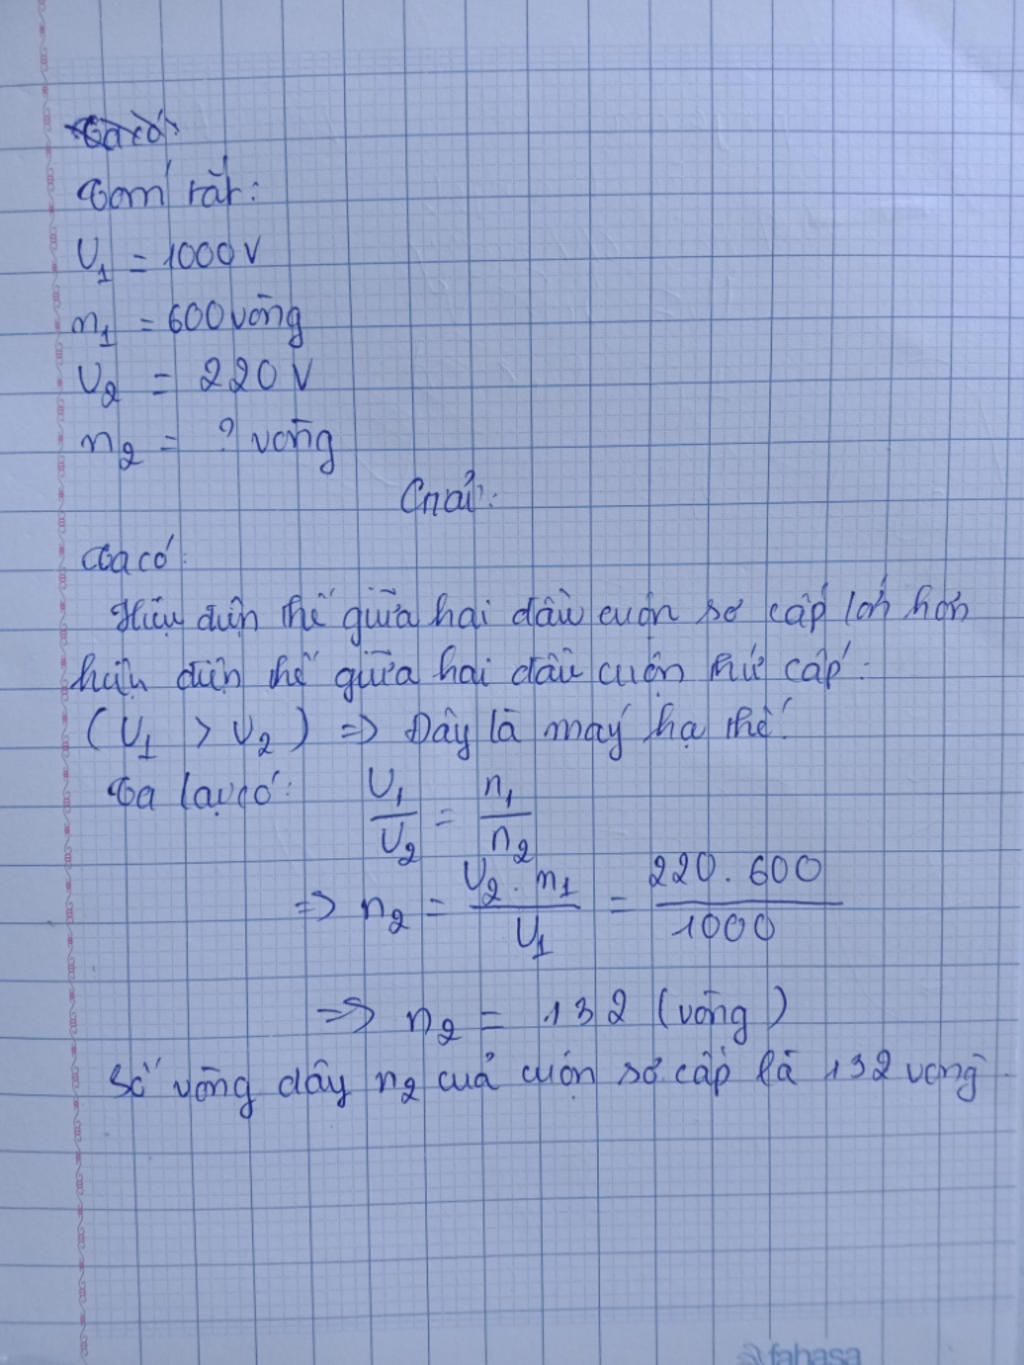 Ta có:
Tóm tắt:
U₁ = 1000V
n₁ = 600 vòng
U₂ = 220 V
n₂ = ? vòng
Giải:
Ta có:
Hiệu điện thế giữa hai đầu cuộn sơ cấp lớn hơn
hiệu điện thế giữa hai đầu cuộn thứ cấp.
(U₁ > U₂) => Đây là máy hạ thế.
Ta lại có: U₁/U₂ = n₁/n₂
=> n₂ = U₂ . n₁ / U₁ = 220 . 600 / 1000
=> n₂ = 132 (vòng)
Số vòng dây n₂ của cuộn sơ cấp là 132 vòng
fahasa